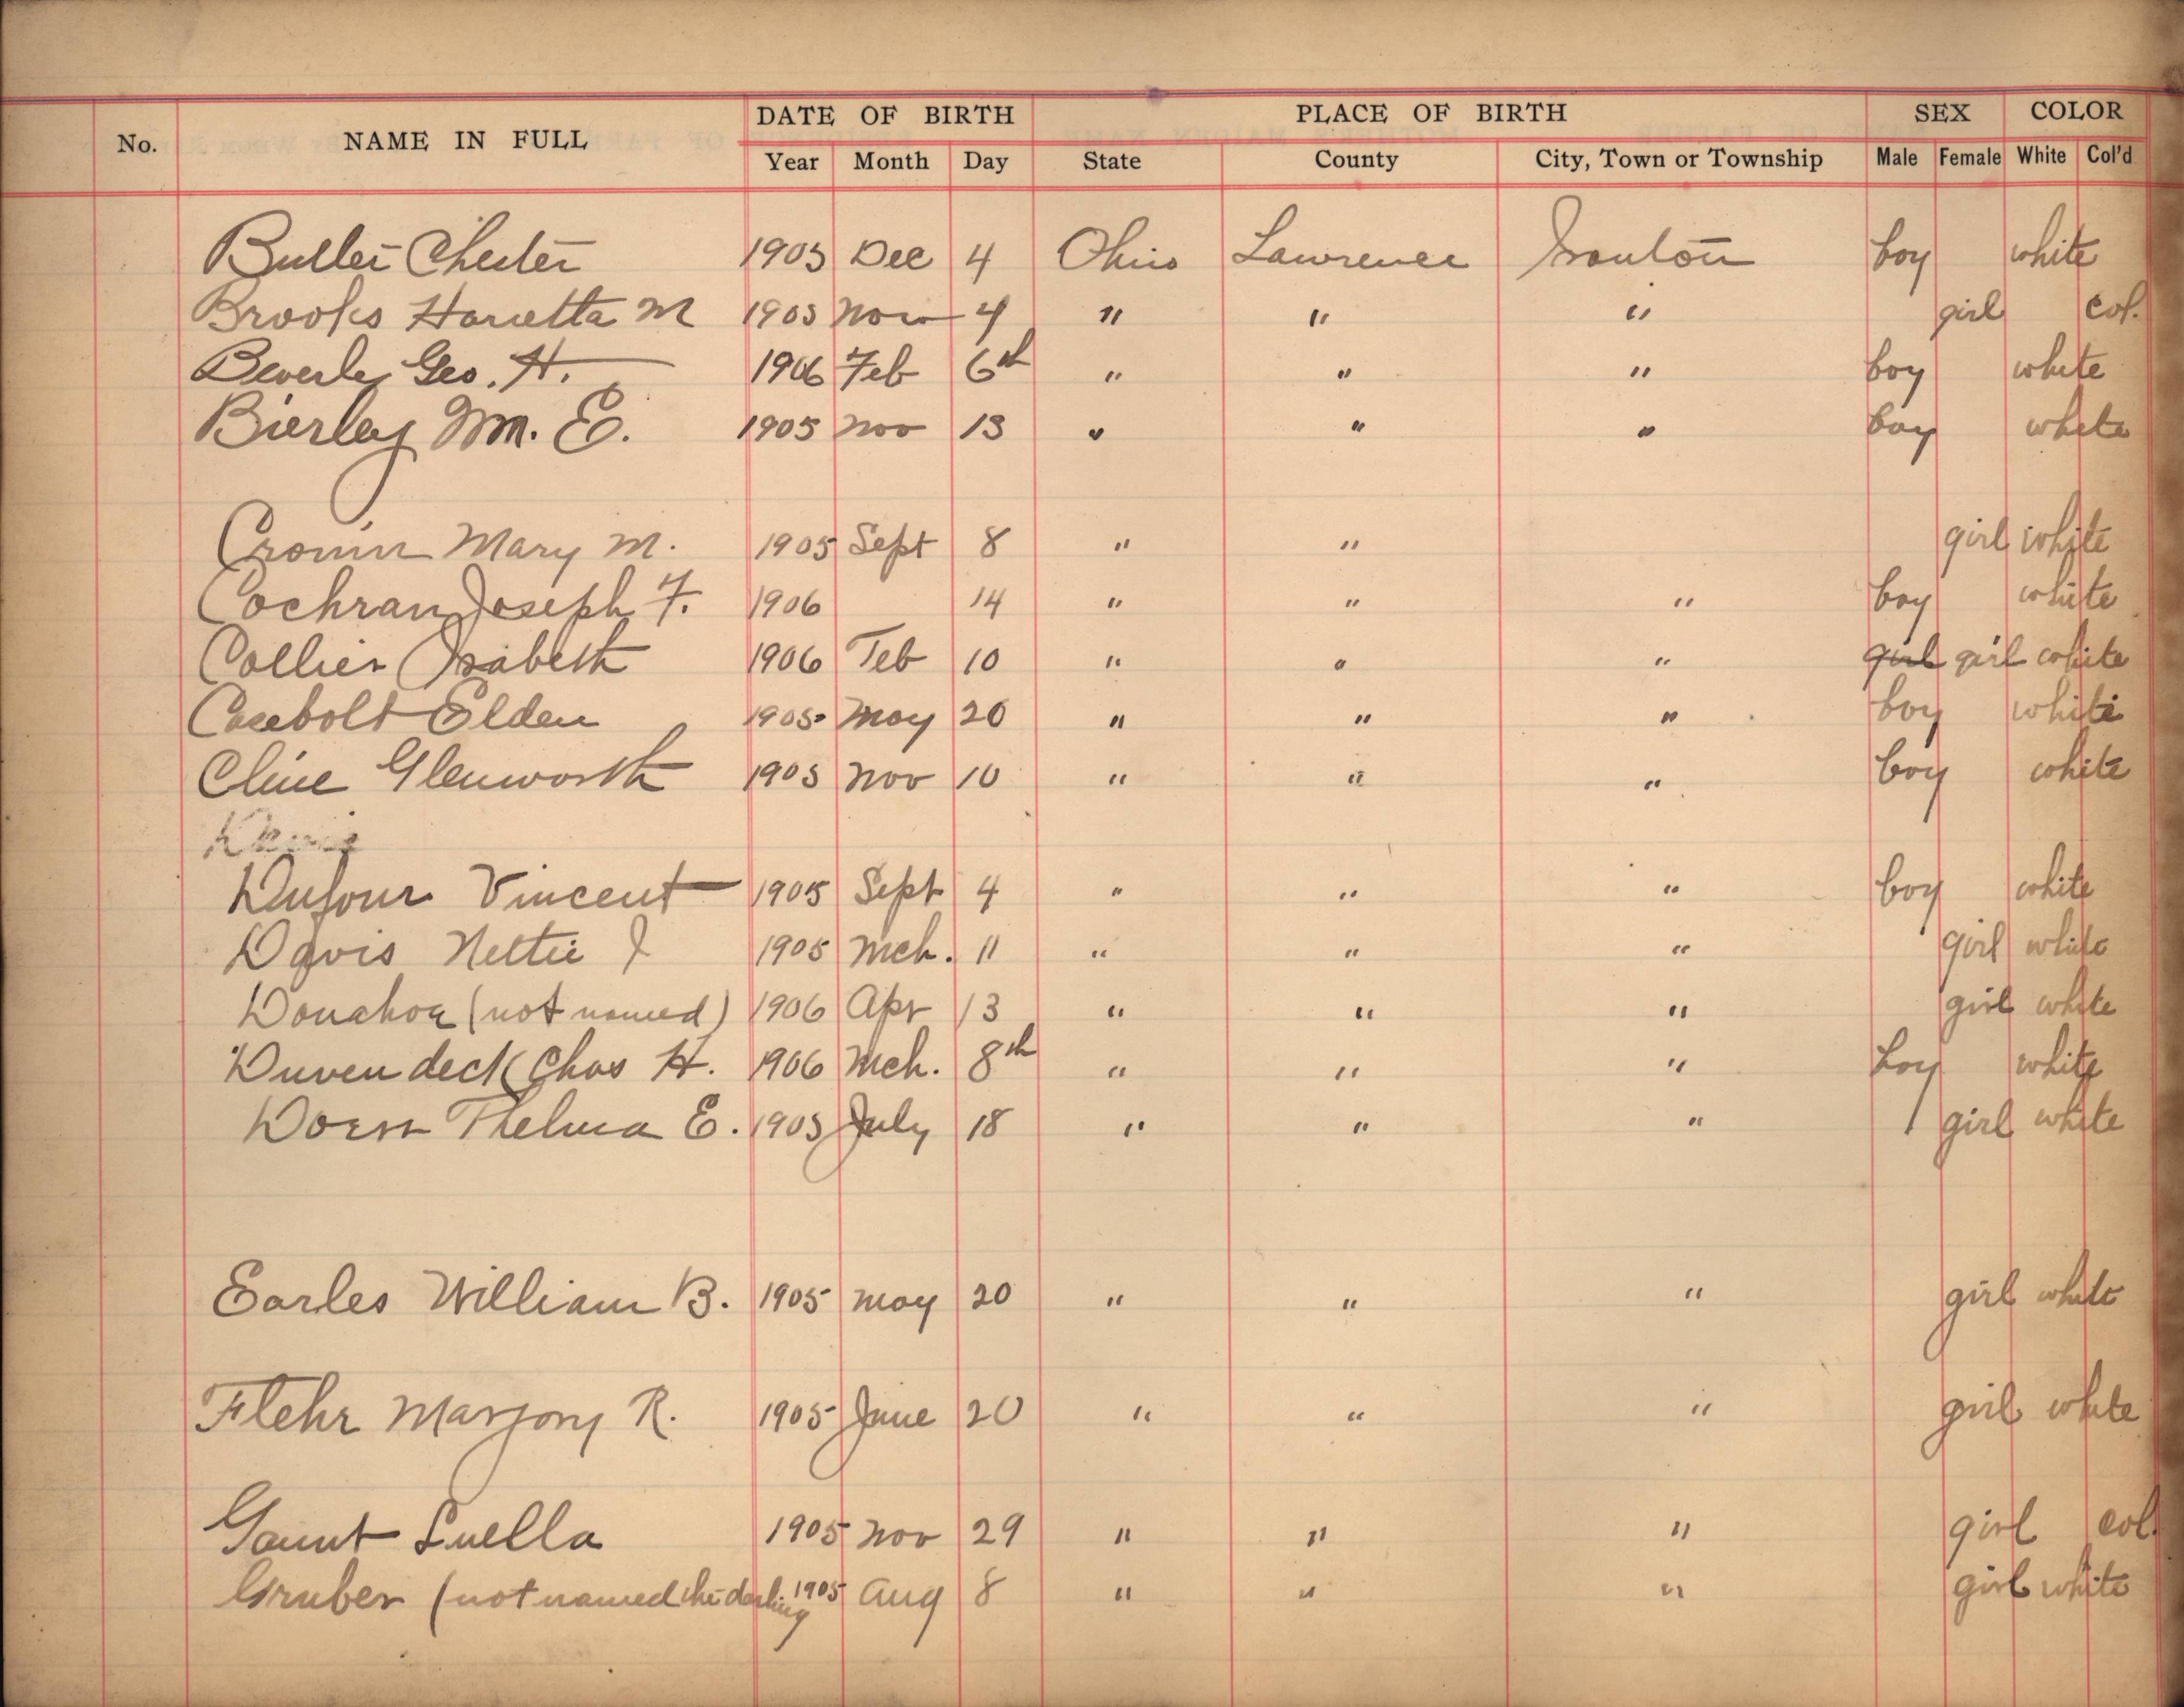 DATE OF BIRTH PLACE OF BIRTH SEX COLOR
No. NAME IN FULL Year Month Day State County City, Town or Township Male Female White Col'd
Butler Chester 1905 Dec 4 Ohio Lawrence Ironton boy white
Brooks Harietta M 1905 Nov 4 " " " girl col.
Beverley Geo. H. 1906 Feb 6th " " " boy white
Bierley Wm. E. 1905 Nov 13 " " " boy white
Cronin Mary M. 1905 Sept 8 " " girl white
Cochran Joseph F. 1906 14 " " " boy white
Collier Isabeth 1906 Feb 10 " " " girl girl white
Casebolt Elden 1905 May 20 " " " boy white
Cline Glenworth 1905 Nov 10 " " " boy white
Davis
Dufour Vincent 1905 Sept 4 " " " boy white
Davis Nettie J 1905 Mch. 11 " " " girl white
Donahoe (not named) 1906 Apr 13 " " " girl white
Duvendeck Chas H. 1906 Mch. 8th " " " boy white
Doerr Thelma E. 1905 July 18 " " " girl white
Earles William B. 1905 May 20 " " " girl white
Flehr Marjory R. 1905 June 20 " " " girl white
Gaunt Luella 1905 Nov 29 " " " girl col.
Gruber (not named the darling 1905 Aug 8 " " " girl white